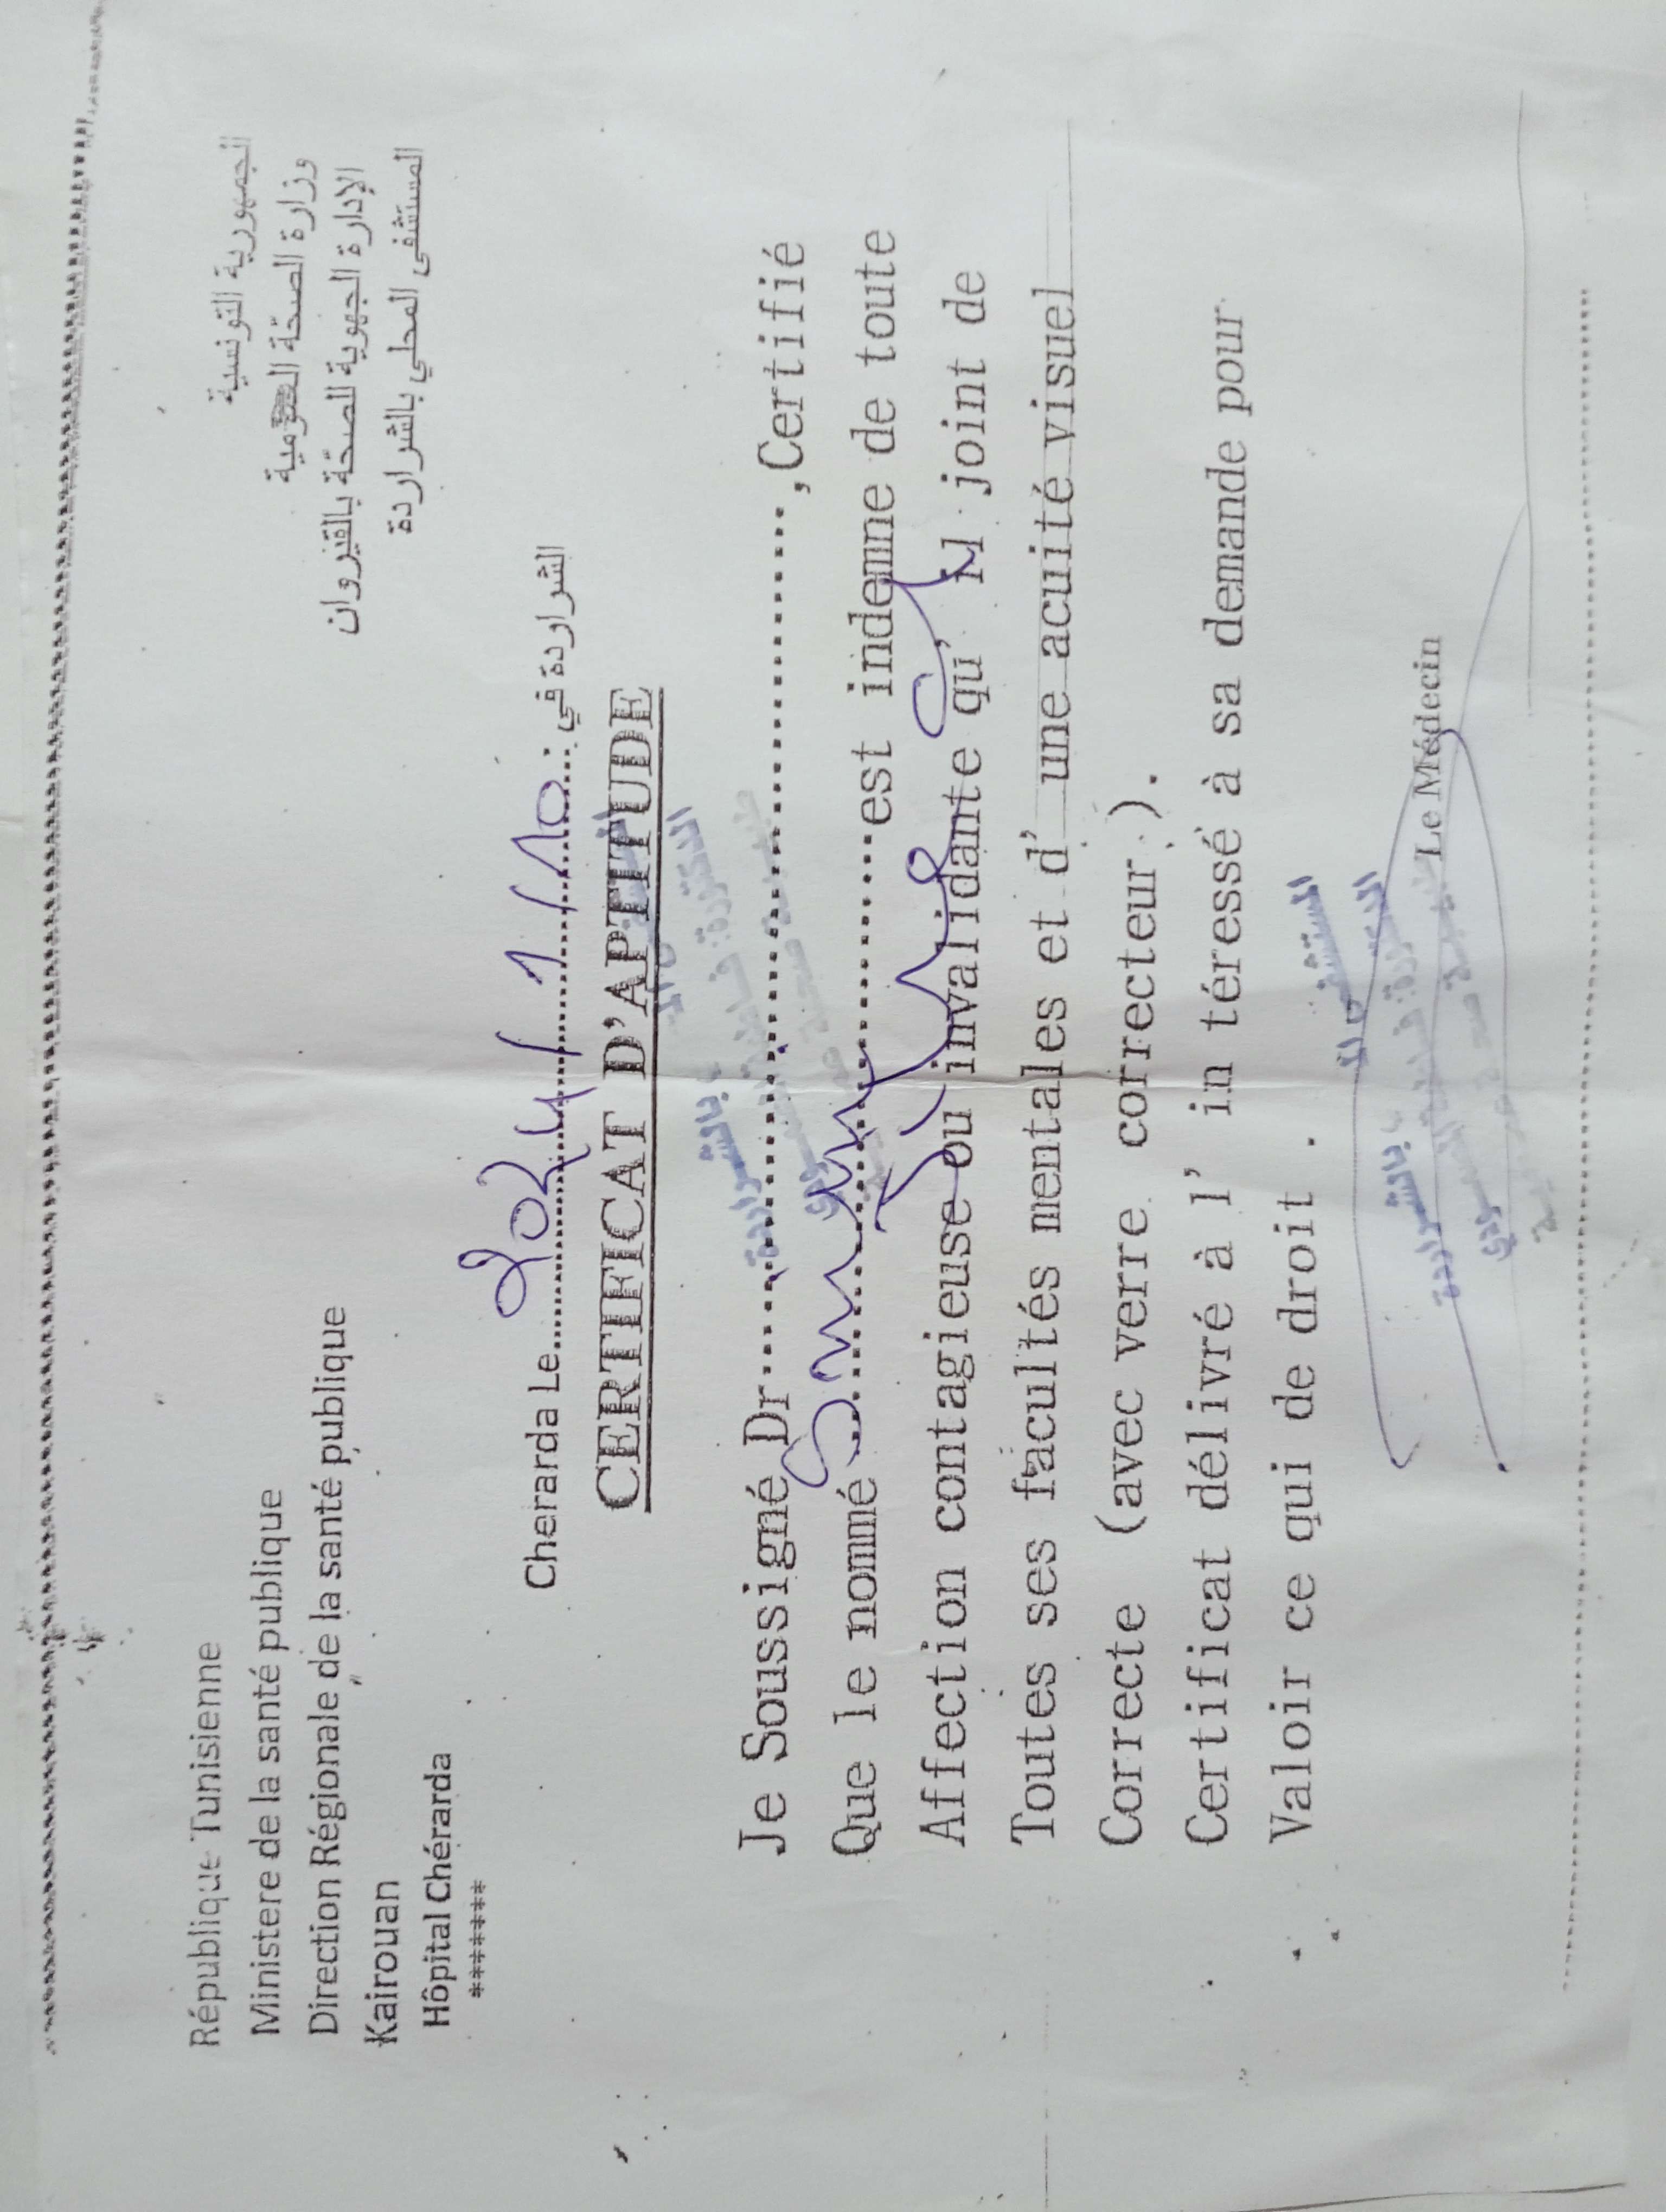 République Tunisienne
Ministere de la santé publique
Direction Régionale de la santé publique
Kairouan
Hôpital Chérarda
*******
الجمهورية التونسية
وزارة الصحة العمومية
الإدارة الجهوية للصحة بالقيروان
المستشفى المحلي بالشراردة
Cherarda Le 2024/1/10 : الشراردة في
CERTIFICAT D'APTITUDE
Je Soussigné Dr ,Certifié
Que le nommé est indemne de toute
Affection contagieuse ou invalidante qu' il joint de
Toutes ses facultés mentales et d' une acuité visuel
Correcte (avec verre correcteur ).
Certificat délivré à l' in téressé à sa demande pour
Valoir ce qui de droit .
Le Médecin
المستشفى بالشراردة